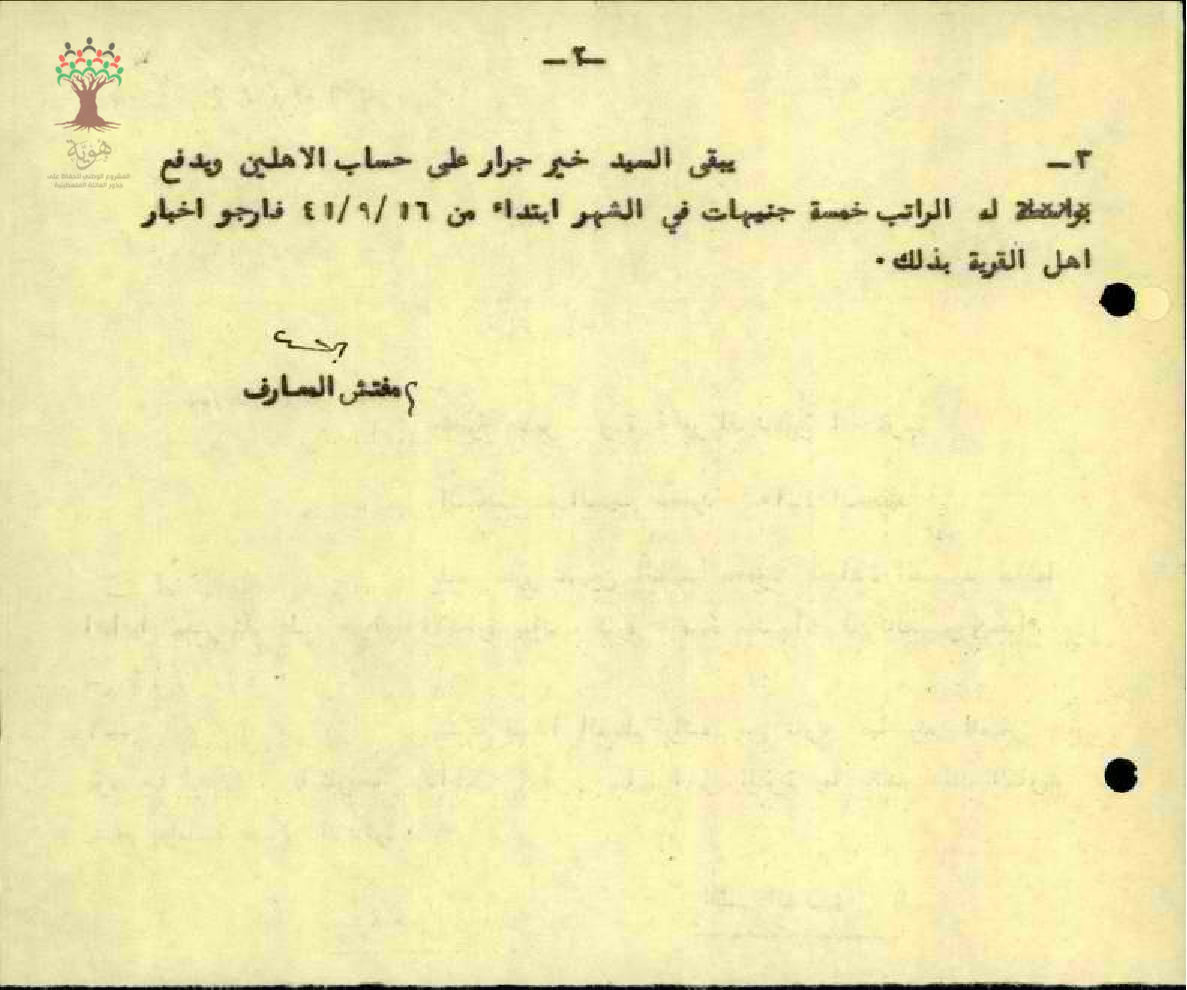 ـ٢ـ
٣ـ يبقى السيد خير جرار على حساب الاهلين ويدفع
بواسطة له الراتب خمسة جنيهات في الشهر ابتداء من ٤١/٩/١٦ فارجو اخبار
اهل القرية بذلك.
مفتش المعارف
هُوِيَّة
المشروع الوطني للحفاظ على
جذور العائلة الفلسطينية